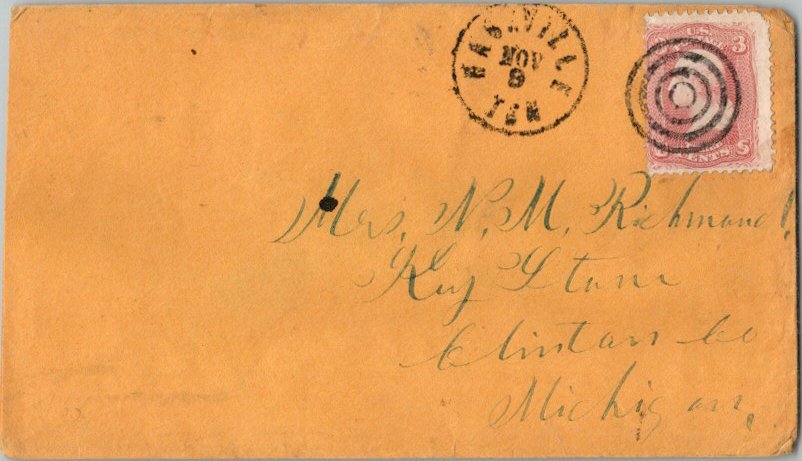 NASHVILLE
NOV
9
TEN
U.S. 3
CENTS
Mrs. N. M. Richmond
Key Stone
Clinton Co
Michigan,